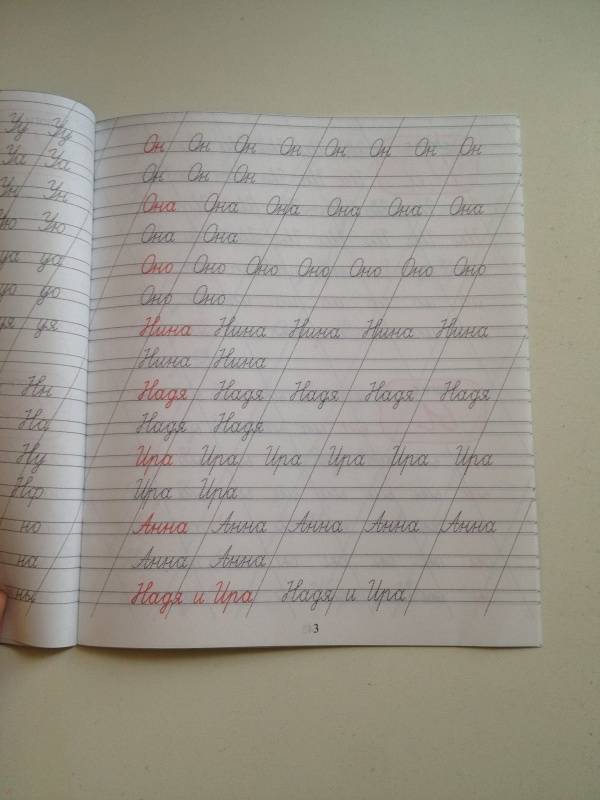 Уу Уу
Уа Уа
Ун Ун
Ую
уа уа
уо уо
уя уя
Нн
На
Ну
Нф
но
на
ны
Он Он Он Он Он Он Он Он
Он Он Он
Она Она Она Она Она Она
Она Она
Оно Оно Оно Оно Оно Оно Оно
Оно Оно
Нина Нина Нина Нина Нина
Нина Нина
Надя Надя Надя Надя Надя
Надя Надя
Ира Ира Ира Ира Ира Ира
Ира Ира
Анна Анна Анна Анна Анна
Анна Анна
Надя и Ира Надя и Ира
3